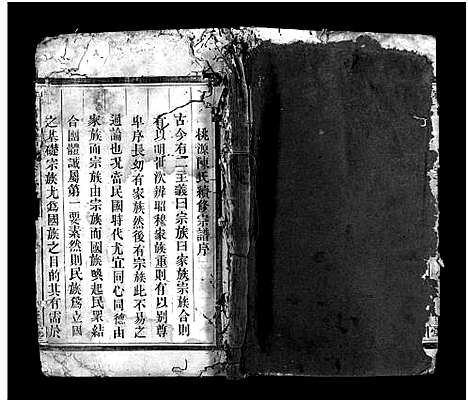 桃源陳氏續修宗譜序
古今有二主義曰宗族曰家族宗族合則
有以明衍派辨昭穆家族重則有以別尊
卑序長幼有家族然後有宗族此不易之
通論也況當民國時代尤宜同心同德由
家族而宗族由宗族而國族喚起民眾結
合團體誠屬第一要素然則民族爲立國
之基礎宗族尤爲國族之目的其有需於